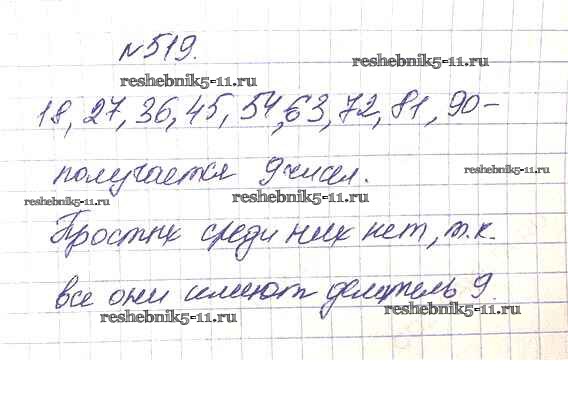 №519.
reshebnik5-11.ru
reshebnik5-11.ru
18, 27, 36, 45, 54, 63, 72, 81, 90 –
reshebnik5-11.ru
получается 9 чисел.
reshebnik5-11.ru
reshebnik5-11.ru
reshebnik5-11.ru
Простых среди них нет, т.к.
все они имеют делитель 9.
reshebnik5-11.ru
reshebnik5-11.ru